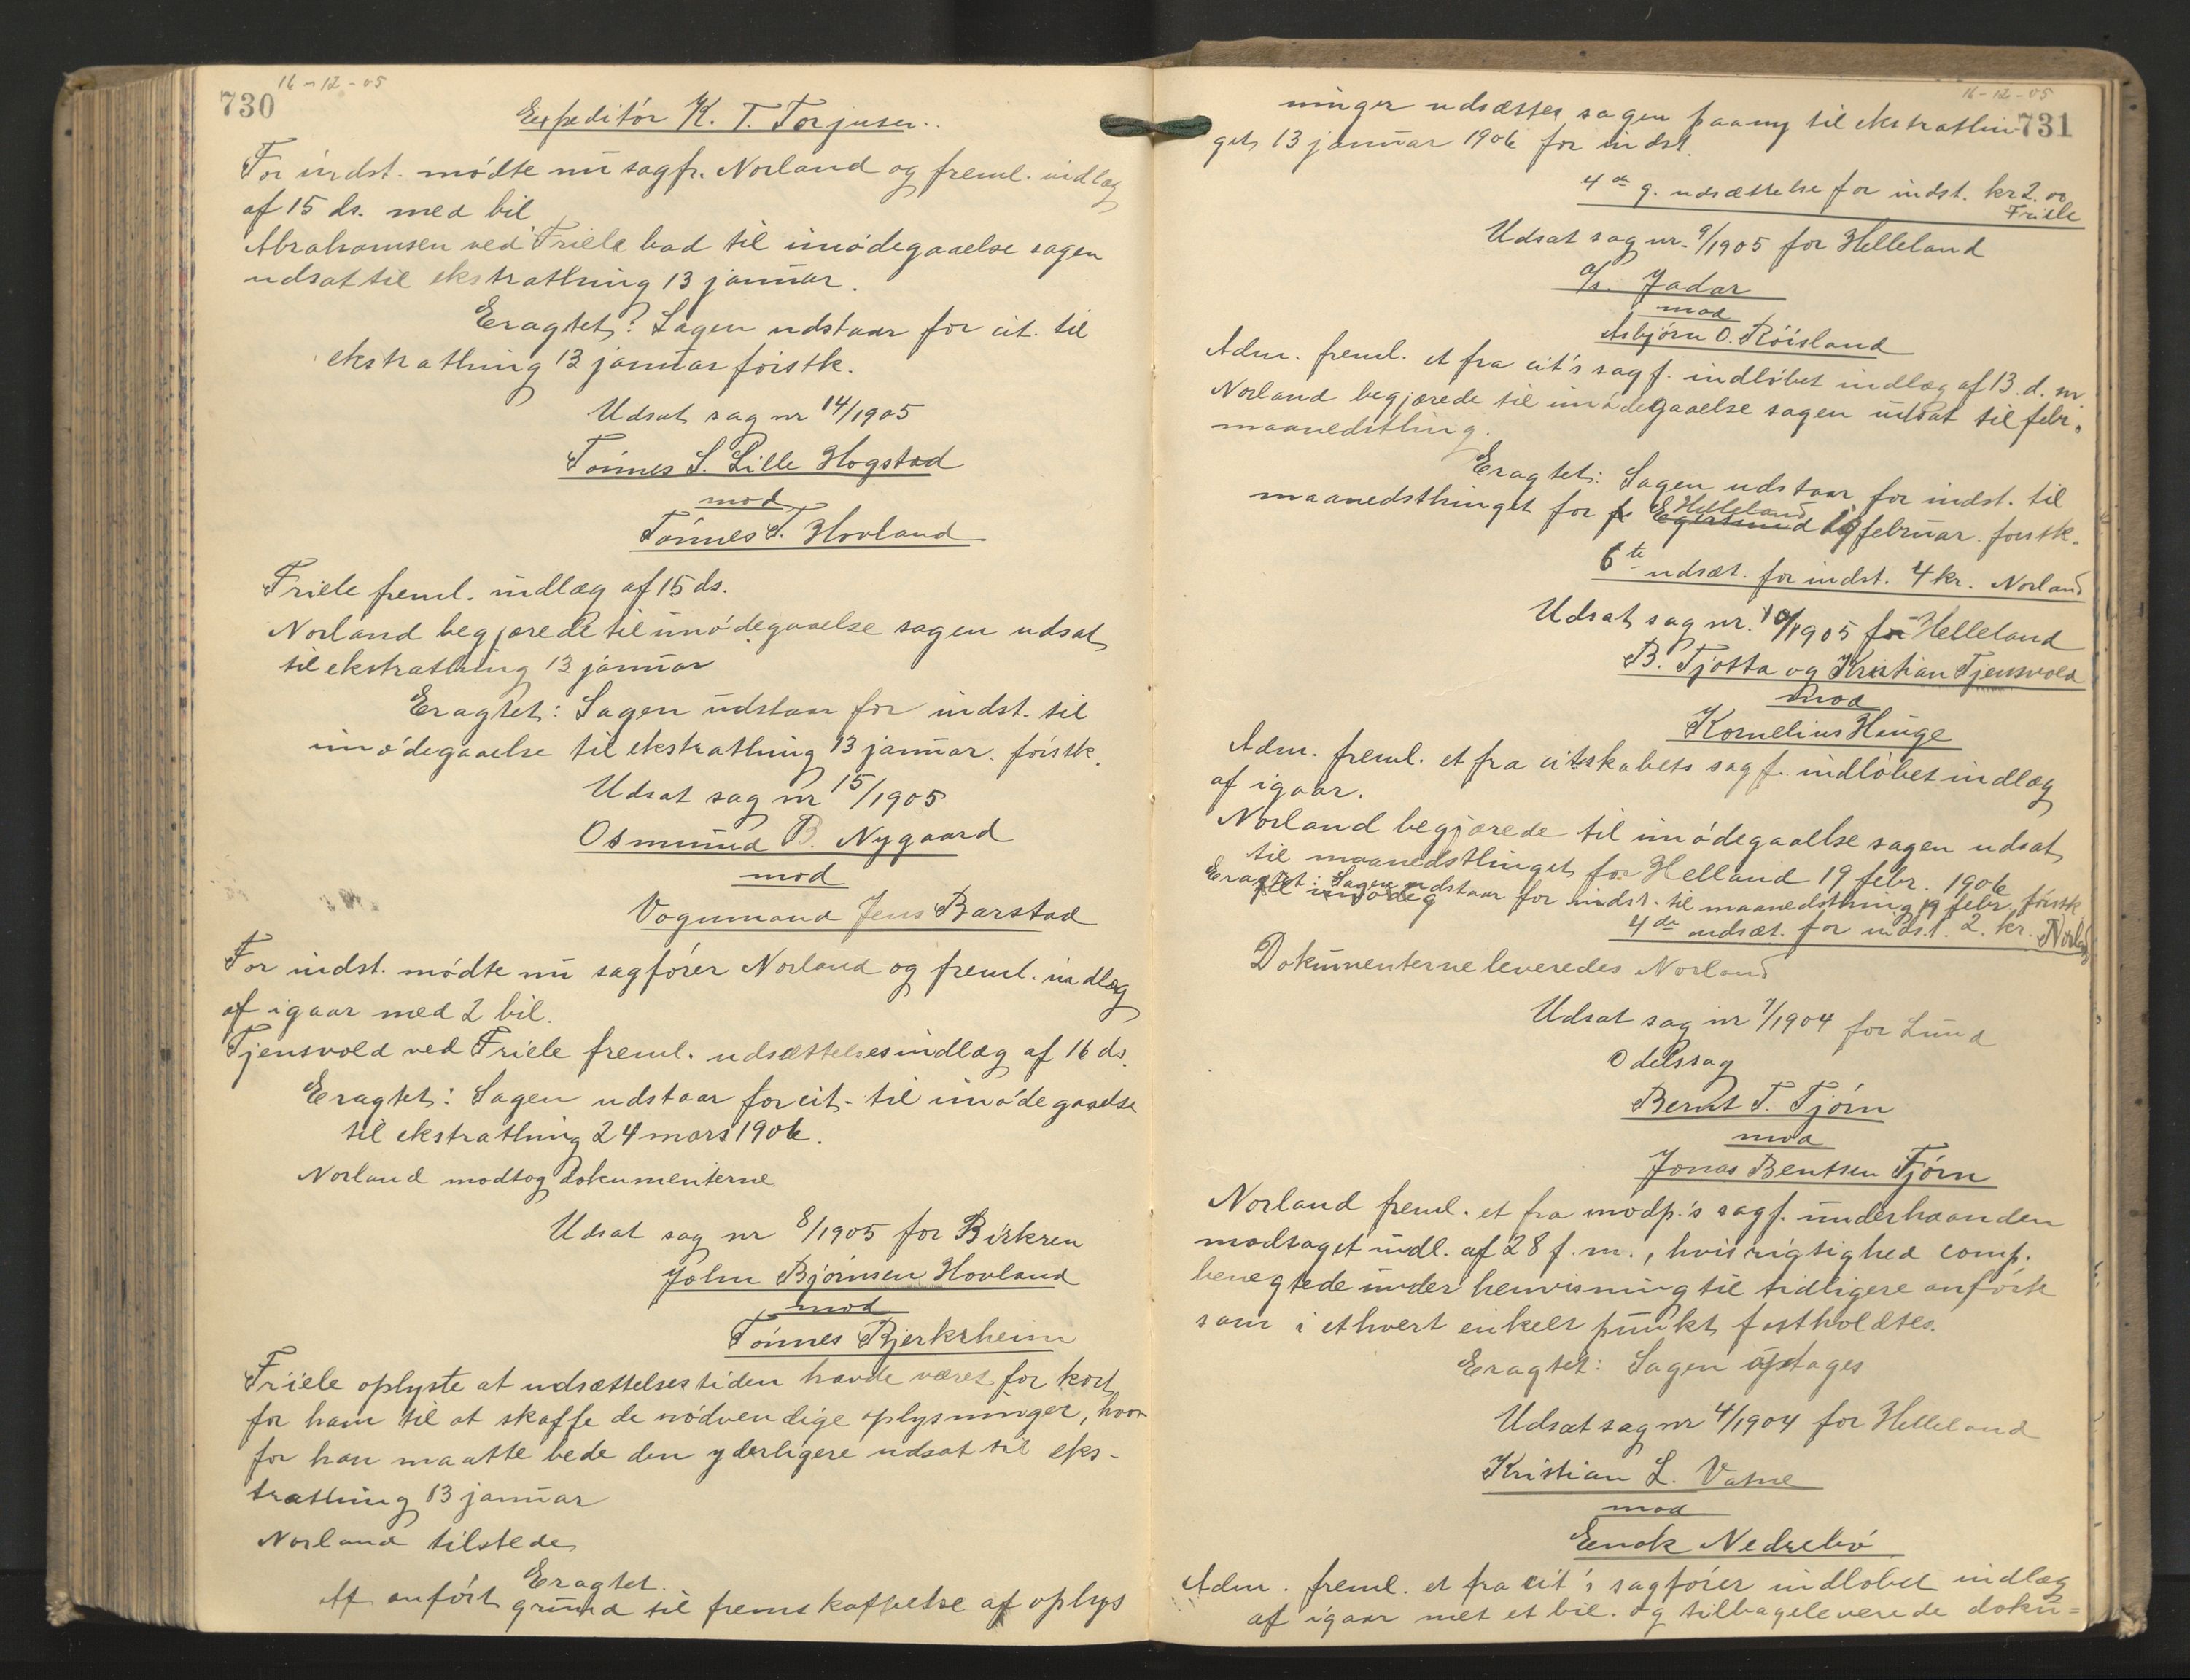 730
16-12-05
Expeditør K. T. Torjusen.
For indst. mødte nu sagf. Norland og freml. indlæg
af 15 ds. med bil
Abrahamsen ved Friele bad til imødegaaelse sagen
udsat til ekstrathing 13 januar.
Eragtet: Sagen udstaar for cit. til
ekstrathing 13 januar førstk.
Udsat sag nr 14/1905
Tønnes S. Lille Hogstad
mod
Tønnes T. Hovland
Friele freml. indlæg af 15 ds.
Norland begjærede til imødegaaelse sagen udsat
til ekstrathing 13 januar
Eragtet: Sagen udstaar for indst. til
imødegaaelse til ekstrathing 13 januar førstk.
Udsat sag nr 15/1905
Osmund B. Nygaard
mod
Vognmand Jens Barstad
For indst. mødte nu sagfører Norland og freml. indlæg
af igaar med 2 bil.
Tjensvold ved Friele freml. udsættelsesindlæg af 16 ds.
Eragtet: Sagen udstaar for cit. til imødegaaelse
til ekstrathing 24 mars 1906.
Norland modtog dokumenterne
Udsat sag nr 8/1905 for Birkren
John Bjørnsen Hovland
mod
Tønnes Bjerkrheim
Friele oplyste at udsættelsestiden havde været for kort
for ham til at skaffe de nødvendige oplysninger, hvor
for han maatte bede den yderligere udsat til eks-
trathing 13 januar
Norland tilstede
Eragtet.
Af anført grund til fremskaffelse af oplys
16-12-05
731
ninger udsættes sagen paany til ekstrathin
get 13 januar 1906 for indst.
4de g. udsættelse for indst. kr 2.00
Friele
Udsat sag nr. 9/1905 for Helleland
a/s. Jadar
mod
Asbjørn O. Røisland
Adm. freml. et fra cit's sagf. indløbet indlæg af 13. d. m
Norland begjærede til imødegaaelse sagen udsat til febr.
maanedsthing.
Eragtet: Sagen udstaar for indst. til
Helleland
maanedsthinget for Egersund 19 februar førstk.
6te udsæt. for indst. 4 kr. Norland
Udsat sag nr. 10/1905 for Helleland
B. Tjøtta og Kristian Tjensvold
mod
Kornelius Hauge
Adm. freml. et fra citskabets sagf. indløbet indlæg
af igaar.
Norland begjærede til imødegaaelse sagen udsat
til maanedsthinget for Helland 19 febr. 1906
Eragtet: Sagen udstaar for indst. til maanedsthing 19 febr. førstk
til imødeg
4de udsæt. for indst. 2. kr. Norland
Dokumenterne leveredes Norland
Udsat sag nr 7/1904 for Lund
Odelssag
Bernt T. Tjørn
mod
Jonas Bentsen Tjørn
Norland freml. et fra modp.'s sagf. underhaanden
modtaget indl. af 28 f. m., hvis rigtighed comp.
benegtede under henvisning til tidligere anførte
som i ethvert enkelt punkt fastholdtes.
Eragtet: Sagen optages
Udsat sag nr 4/1904 for Helleland
Kristian L. Vatne
mod
Enok Nedrebø
Adm. freml. et fra cit's sagfører indløbet indlæg
af igaar met et bil. og tilbageleverede doku=